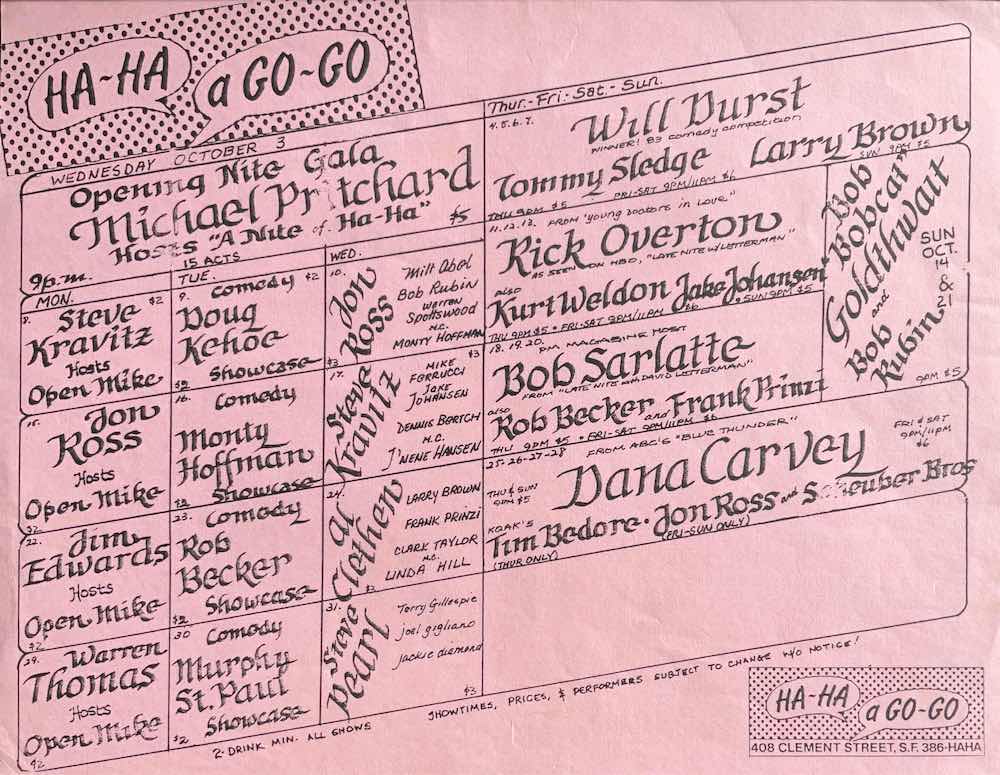 HA-HA
a GO-GO
WEDNESDAY OCTOBER 3
Opening Nite Gala
Michael Pritchard
Hosts "A Nite of Ha-Ha"
15 ACTS
$5
9p.m.
MON.
8.
Steve $2
Kravitz
Hosts
Open Mike
15.
Jon
Ross
Hosts
Open Mike
$2
22.
Jim
Edwards
Hosts
Open Mike
$2
29.
Warren
Thomas
Hosts
Open Mike
$2
TUE.
9. Comedy $2
Doug
Kehoe
Showcase
$2
16. Comedy
Monty
Hoffman
Showcase
$2
23. Comedy
Rob
Becker
Showcase
$2
30 Comedy
Murphy
St. Paul
Showcase
$2
WED.
10.
Jon
Ross
Milt Abel
Bob Rubin
Warren
Spottswood
M.C.
MONTY HOFFMAN
$3
17.
Steve
Kravitz
$3
MIKE
FERRUCCI
JAKE
JOHANSEN
DENNIS BERTCH
M.C.
J'NENE HANSEN
24.
Al
Clethen
LARRY BROWN
FRANK PRINZI
CLARK TAYLOR
M.C.
LINDA HILL
$3
31.
Steve
Pearl
Terry Gillespie
joel gigliano
jackie diamond
$3
Thur.-Fri.-Sat.-Sun.
4.5.6.7.
Will Durst
WINNER! 83 comedy competition
Tommy Sledge Larry Brown
THU 9PM $5 FRI-SAT 9PM/11PM $6 SUN 9PM $5
11.12.13. FROM "young DOCTORS IN LOVE"
Rick Overton
AS SEEN ON HBO, "LATE NITE W/LETTERMAN"
also
Kurt Weldon Jake Johansen
THU 9PM $5 • FRI-SAT 9PM/11PM $6 • SUN 9PM $5
Bob
"Bobcat"
Goldthwait
and
Bob
Rubin
SUN
OCT.
14
&
21
9PM $5
18.19.20. PM MAGAZINE HOST
Bob Sarlatte
FROM "LATE NITE with DAVID LETTERMAN"
also
Rob Becker and Frank Prinzi
THU 9PM $5 • FRI-SAT 9PM/11PM $6
25-26-27-28 FROM ABC'S "BLUE THUNDER"
THU & SUN
9PM $5
Dana Carvey
FRI & SAT
9PM/11PM
$6
KQAK'S
Tim Bedore • Jon Ross and Scheuber Bros
(THUR ONLY) (FRI-SUN ONLY)
2-DRINK MIN. ALL SHOWS
SHOWTIMES, PRICES, & PERFORMERS SUBJECT TO CHANGE W/O NOTICE!
HA-HA
a GO-GO
408 CLEMENT STREET, S.F. 386-HAHA